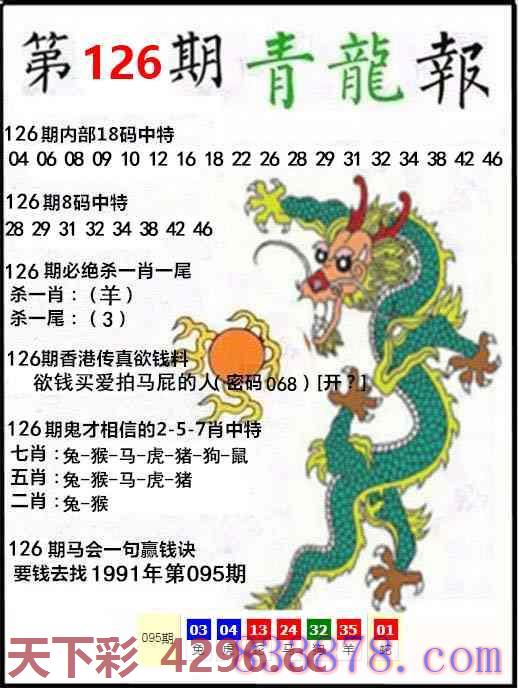 第126期青龍報
126期内部18码中特
04 06 08 09 10 12 16 18 22 26 28 29 31 32 34 38 42 46
126期8码中特
28 29 31 32 34 38 42 46
126期必绝杀一肖一尾
杀一肖：（羊）
杀一尾：（3）
126期香港传真欲钱料
欲钱买爱拍马屁的人(密码068)[开？]
126期鬼才相信的2-5-7肖中特
七肖：兔-猴-马-虎-猪-狗-鼠
五肖：兔-猴-马-虎-猪
二肖：兔-猴
126期马会一句赢钱诀
要钱去找1991年第095期
095期 03 04 13 24 32 35 01
兔 虎 马 狗 羊 蛇
天下彩 4296.cc
838878.com